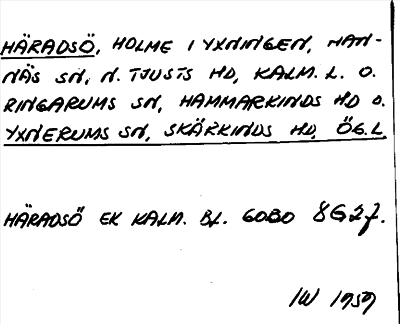 HÄRADSÖ, HOLME I YXNINGEN, HAN-
NÄS SN, N. TJUSTS HD, KALM. L. O.
RINGARUMS SN, HAMMARKINDS HD O.
YXNERUMS SN, SKÄRKINDS HD, ÖG.L.
HÄRADSÖ EK KALM. BL. 6080 8G2f.
IW 1959